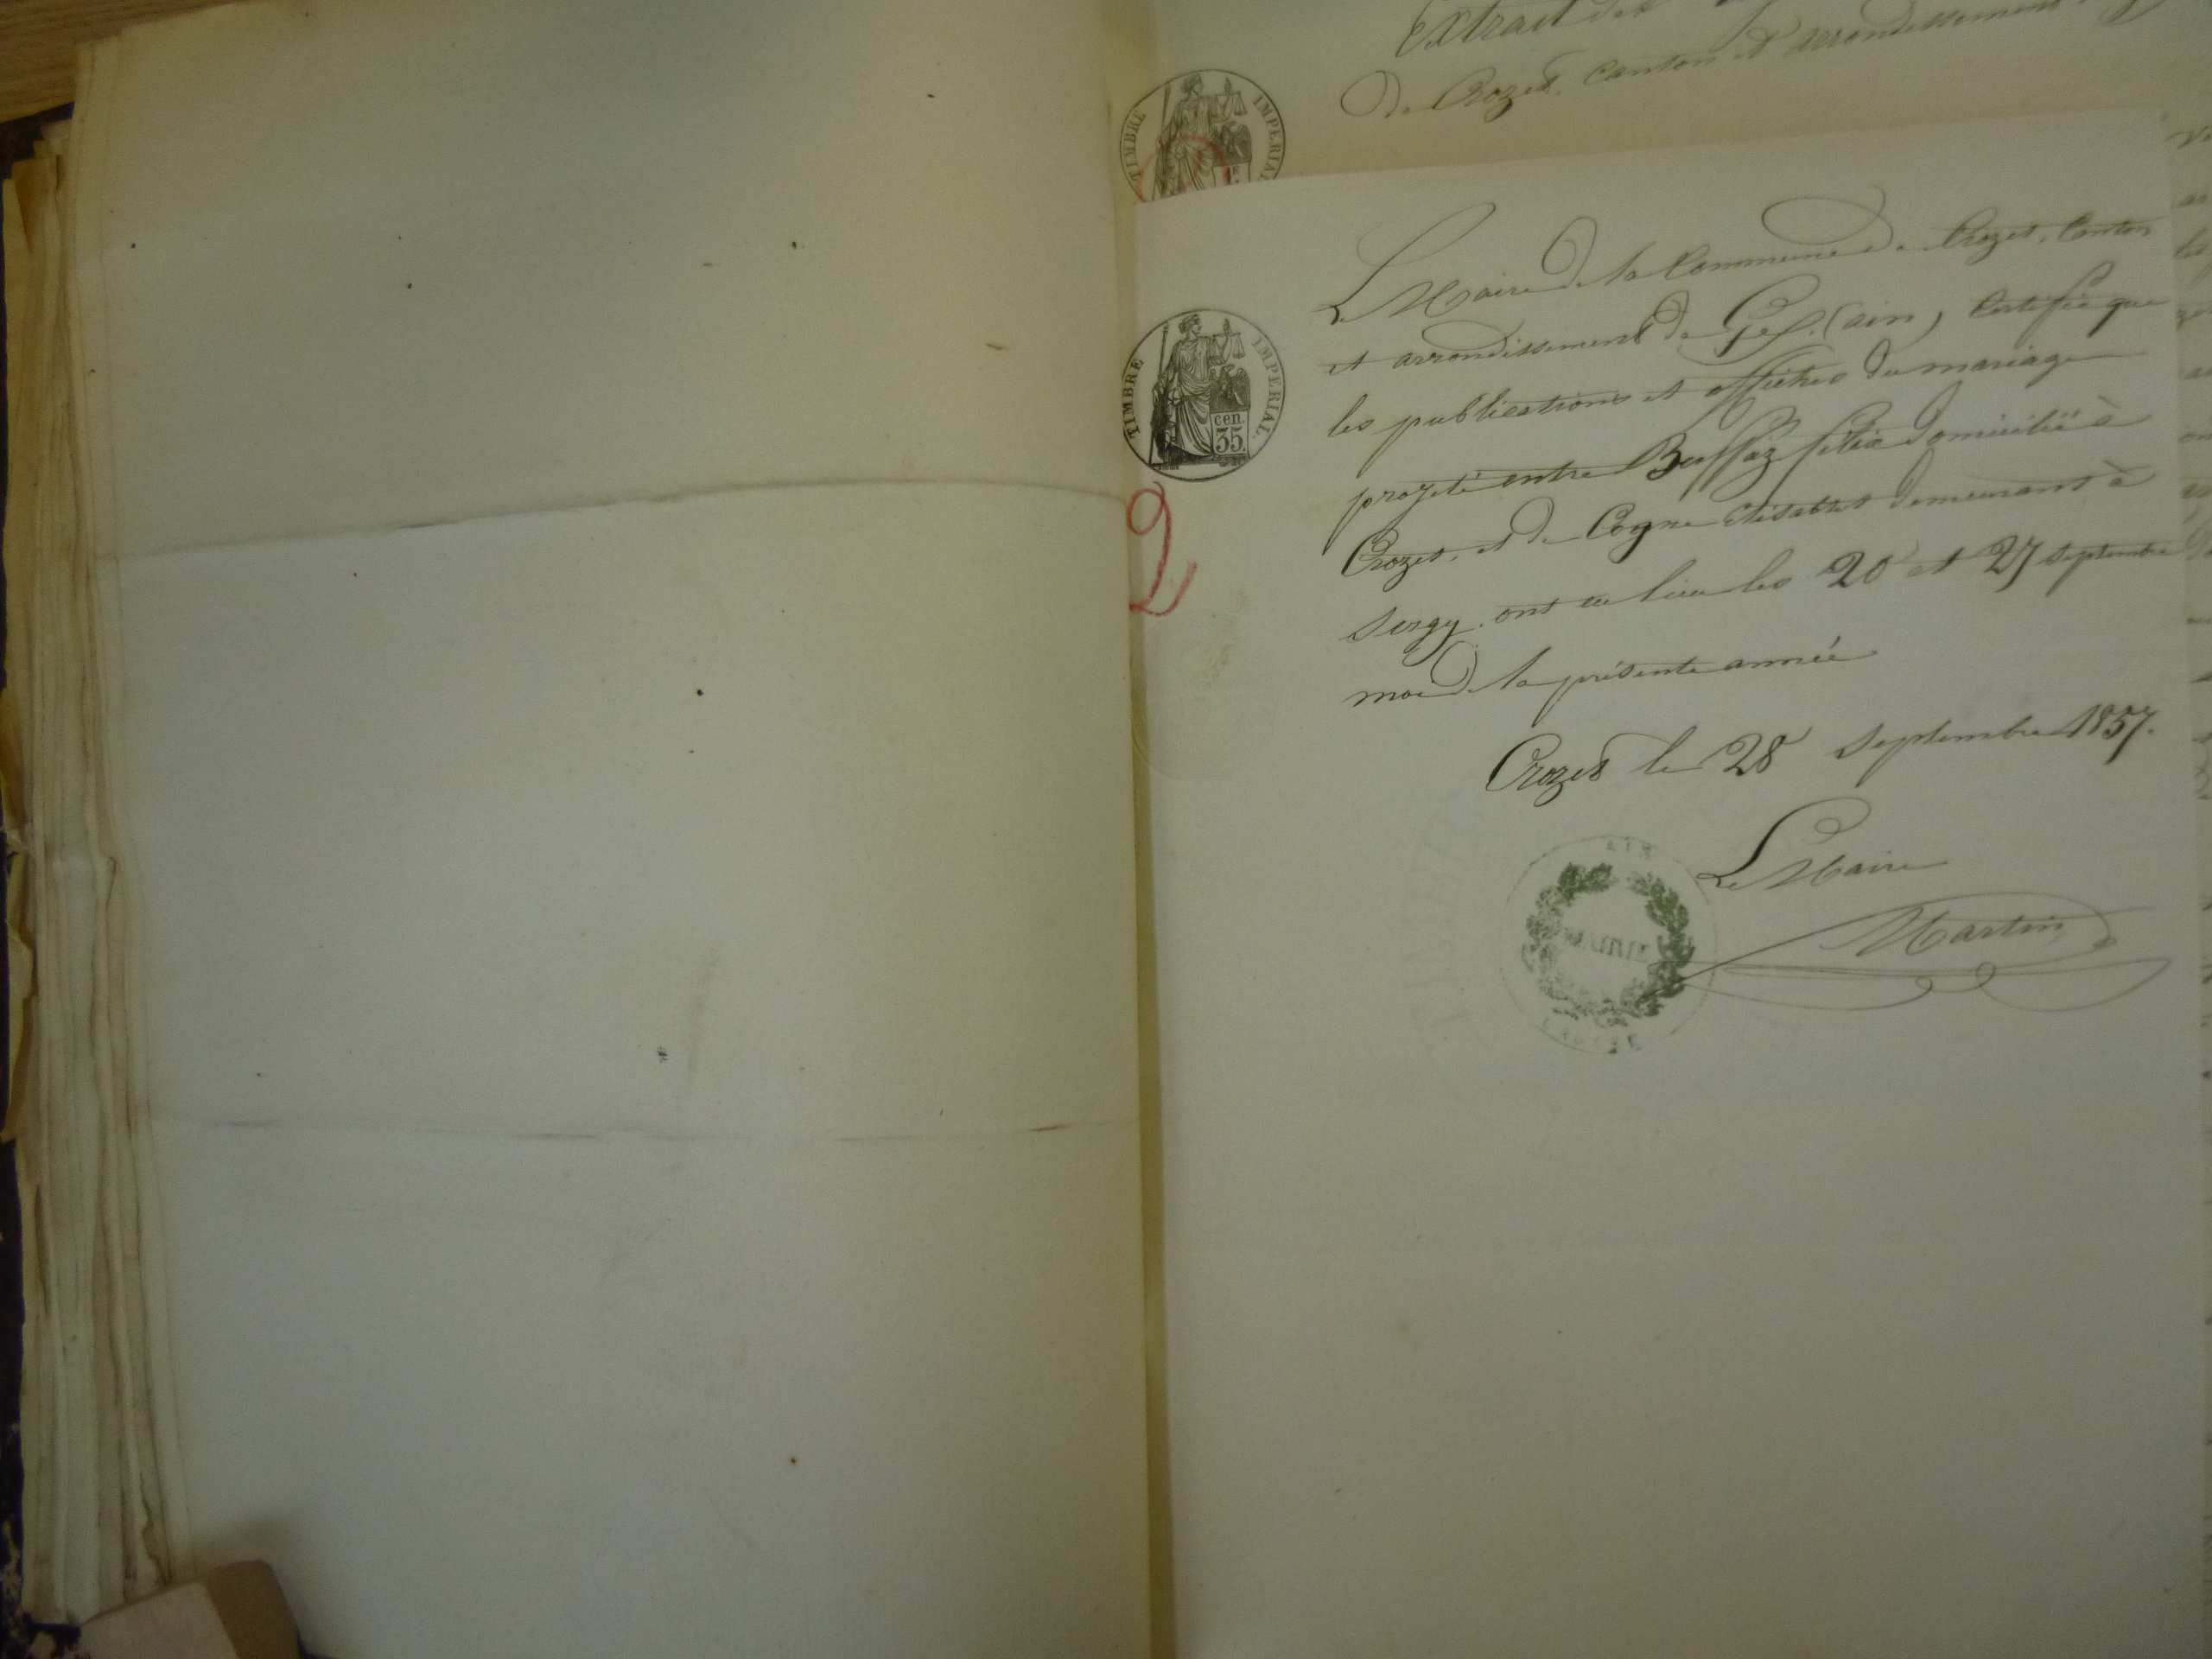 Extrait des
de Crozet, Canton et arrondissement
TIMBRE IMPERIAL
Le Maire de la Commune de Crozet, Canton
et arrondissement de Gex (ain), Certifie que
les publications et affiches du mariage
projeté entre Buffaz félix domicilié à
Crozet, et de Cogne Elisabet demeurant à
Sergy, ont eu lieu les 20 et 27 septembre
moi de la présente année
Crozet le 28 Septembre 1857.
Le Maire
Martin
TIMBRE IMPERIAL
cen.
35.
2
AIN
MAIRIE
CROZET